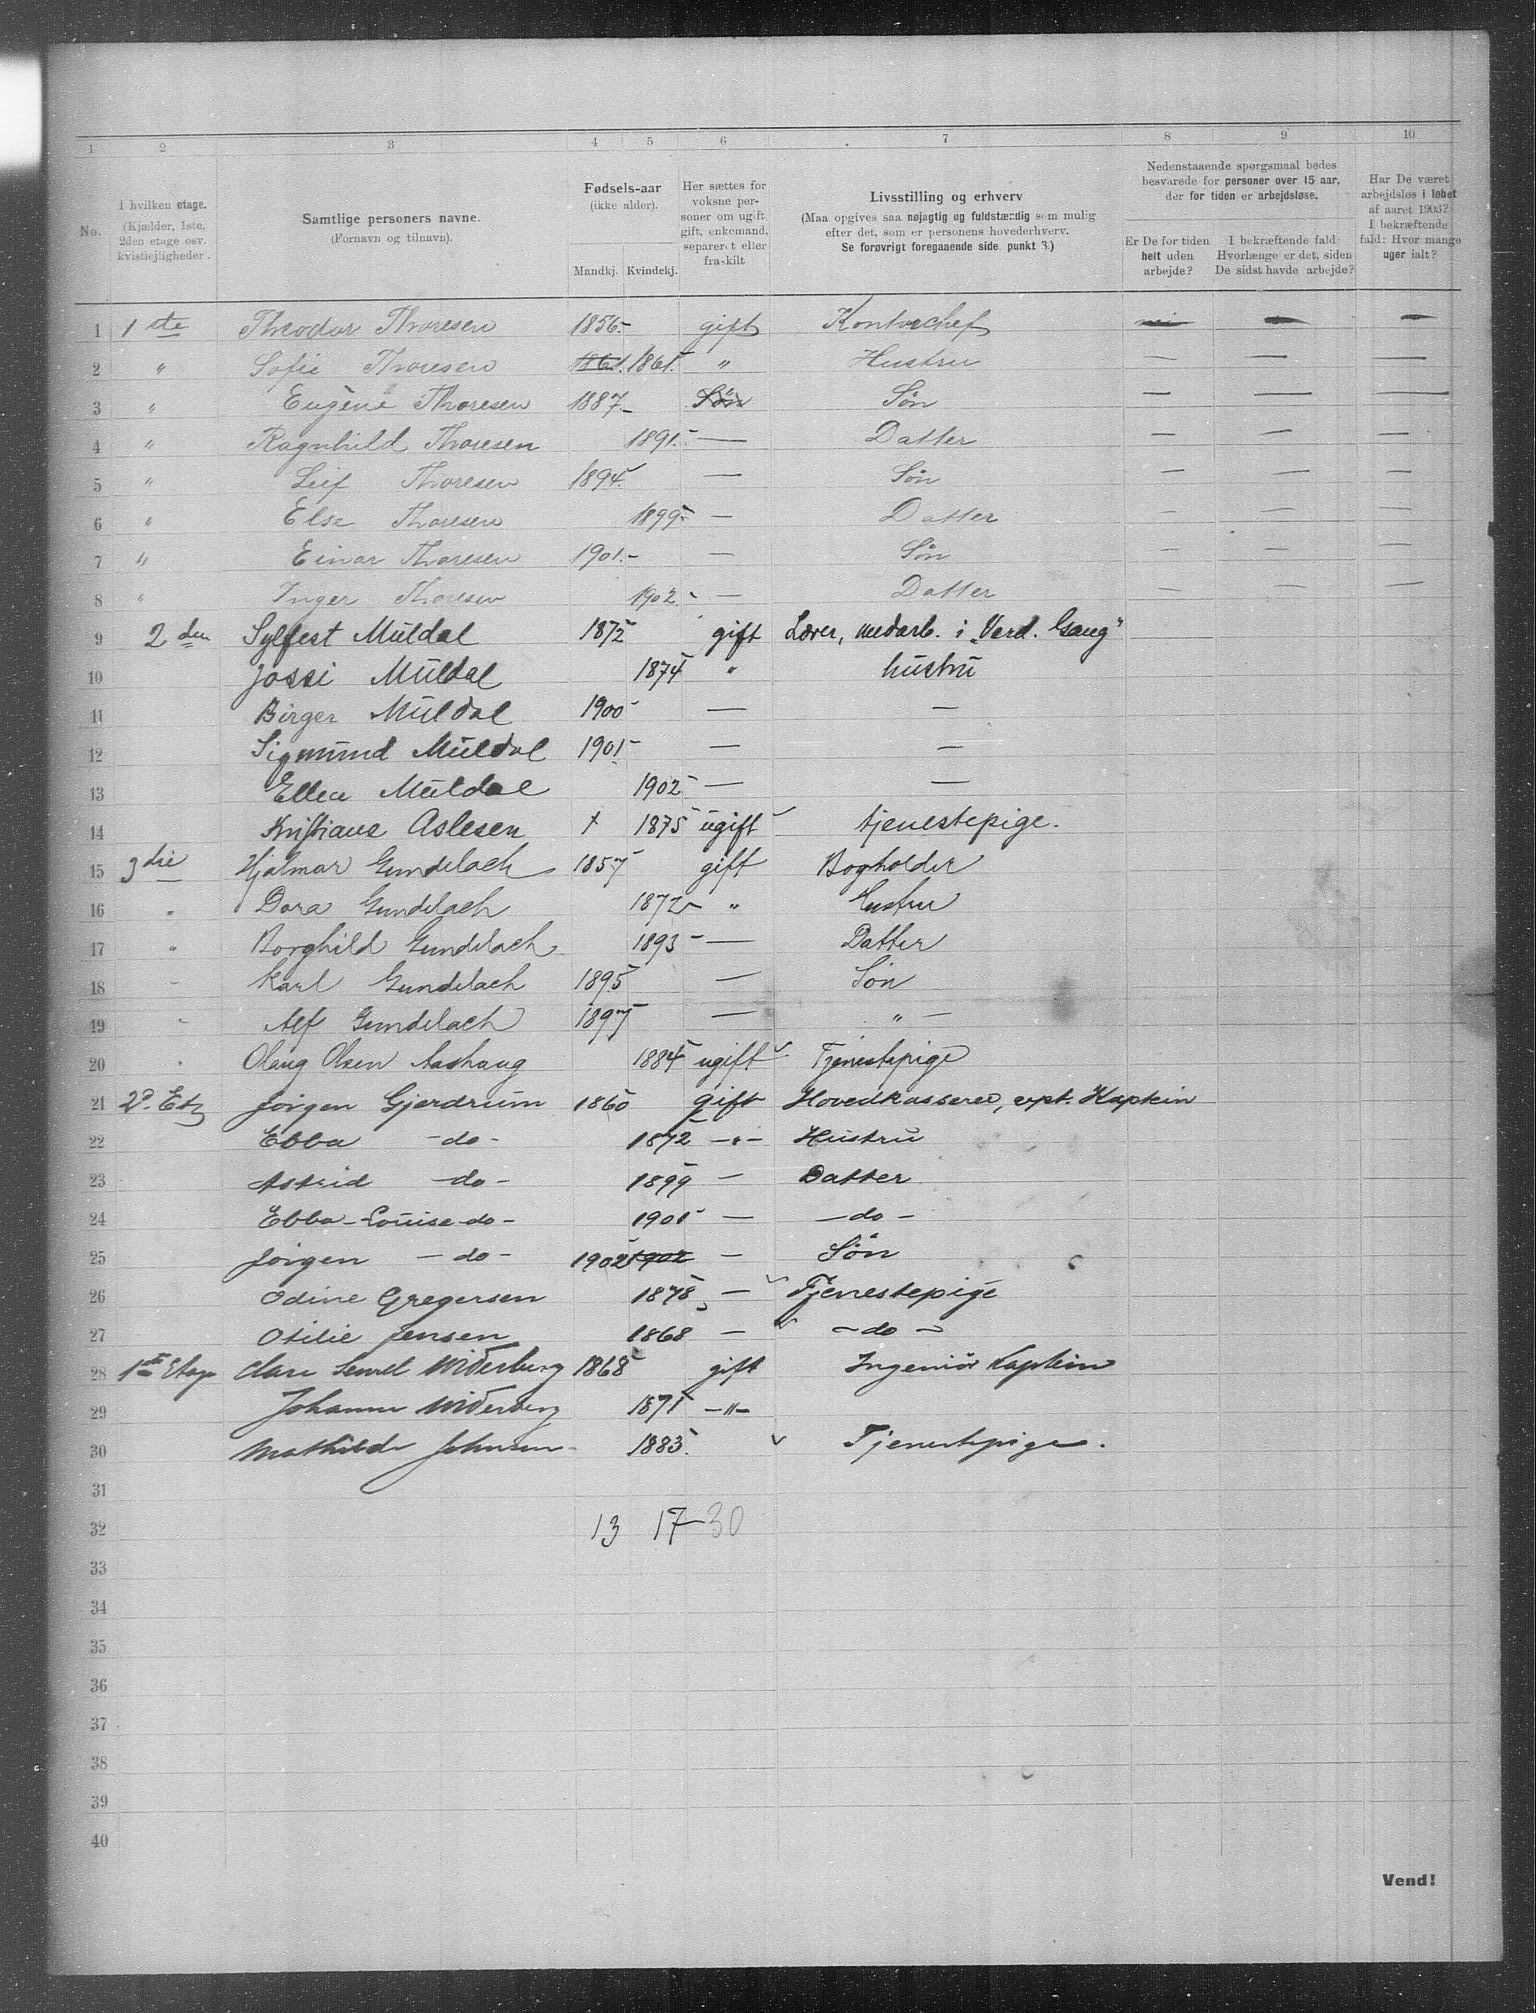 1 2 3 4 5 6 7 8 9 10
No.
I hvilken etage.
(Kjælder, 1ste,
2den etage osv.
kvistlejligheder.
Samtlige personers navne.
(Fornavn og tilnavn).
Fødsels-aar
(ikke alder).
Mandkj. Kvindekj.
Her sættes for
voksne per-
soner om ugift,
gift, enkemand,
separeret eller
fraskilt
Livsstilling og erhverv
(Maa opgives saa nøjagtig og fuldstændig som mulig
efter det, som er personens hovederhverv.
Se forøvrigt foregaaende side, punkt 3.)
Nedenstaaende spørgsmaal bedes
besvarede for personer over 15 aar,
der for tiden er arbejdsløse.
Er De for tiden
helt uden
arbejde?
I bekræftende fald:
Hvorlænge er det, siden
De sidst havde arbejde?
Har De været
arbejdsløs i løbet
af aaret 1903?
I bekræftende
fald: Hvor mange
uger ialt?
1 1ste Theodor Thoresen 1856.- gift Kontorchef nei — —
2 " Sofie Thoresen 1861. 1861.- " Hustru — — —
3 " Eugène Thoresen 1887.- Søn Søn — — —
4 " Ragnhild Thoresen 1891.- — Datter — — —
5 " Leif Thoresen 1894.- — Søn — — —
6 " Else Thoresen 1899.- — Datter — — —
7 " Einar Thoresen 1901.- — Søn — — —
8 " Inger Thoresen 1902.- — Datter — — —
9 2den Sylfest Muldal 1872 gift Lærer, medarb. i „Verd. Gang"
10 Jossi Muldal 1874 " hustru
11 Birger Muldal 1900 — —
12 Sigmund Muldal 1901 — —
13 Ellen Muldal 1902 — —
14 Kristiane Aslesen x 1875 ugift tjenestepige.
15 3die Hjalmar Gundelach 1857 gift Bogholder
16 " Dora Gundelach 1872 " Hustru
17 " Borghild Gundelach 1893 — Datter
18 " Karl Gundelach 1895 — Søn
19 " Alf Gundelach 1897 — " —
20 " Olaug Olsen Aashaug 1884 ugift Tjenestepige
21 2d. Etg Jørgen Gjerdrum 1860 gift Hovedkasserer, Kaptein
22 Ebba - do - 1872 -"- Hustru
23 Astrid - do - 1899 — Datter
24 Ebba-Louise - do - 1901 — - do -
25 Jørgen - do - 1902 1902 — Søn
26 Odine Gregersen 1878 — Tjenestepige
27 Otilie Jensen 1868 — - do -
28 1ste Etage Widerberg 1868 gift Ingeniør Kaptein
29 Johanne Widerberg 1871 -"-
30 Mathilde Johnsen 1883. Tjenestepige.
31
32 13 17 - 30
33
34
35
36
37
38
39
40
Vend!